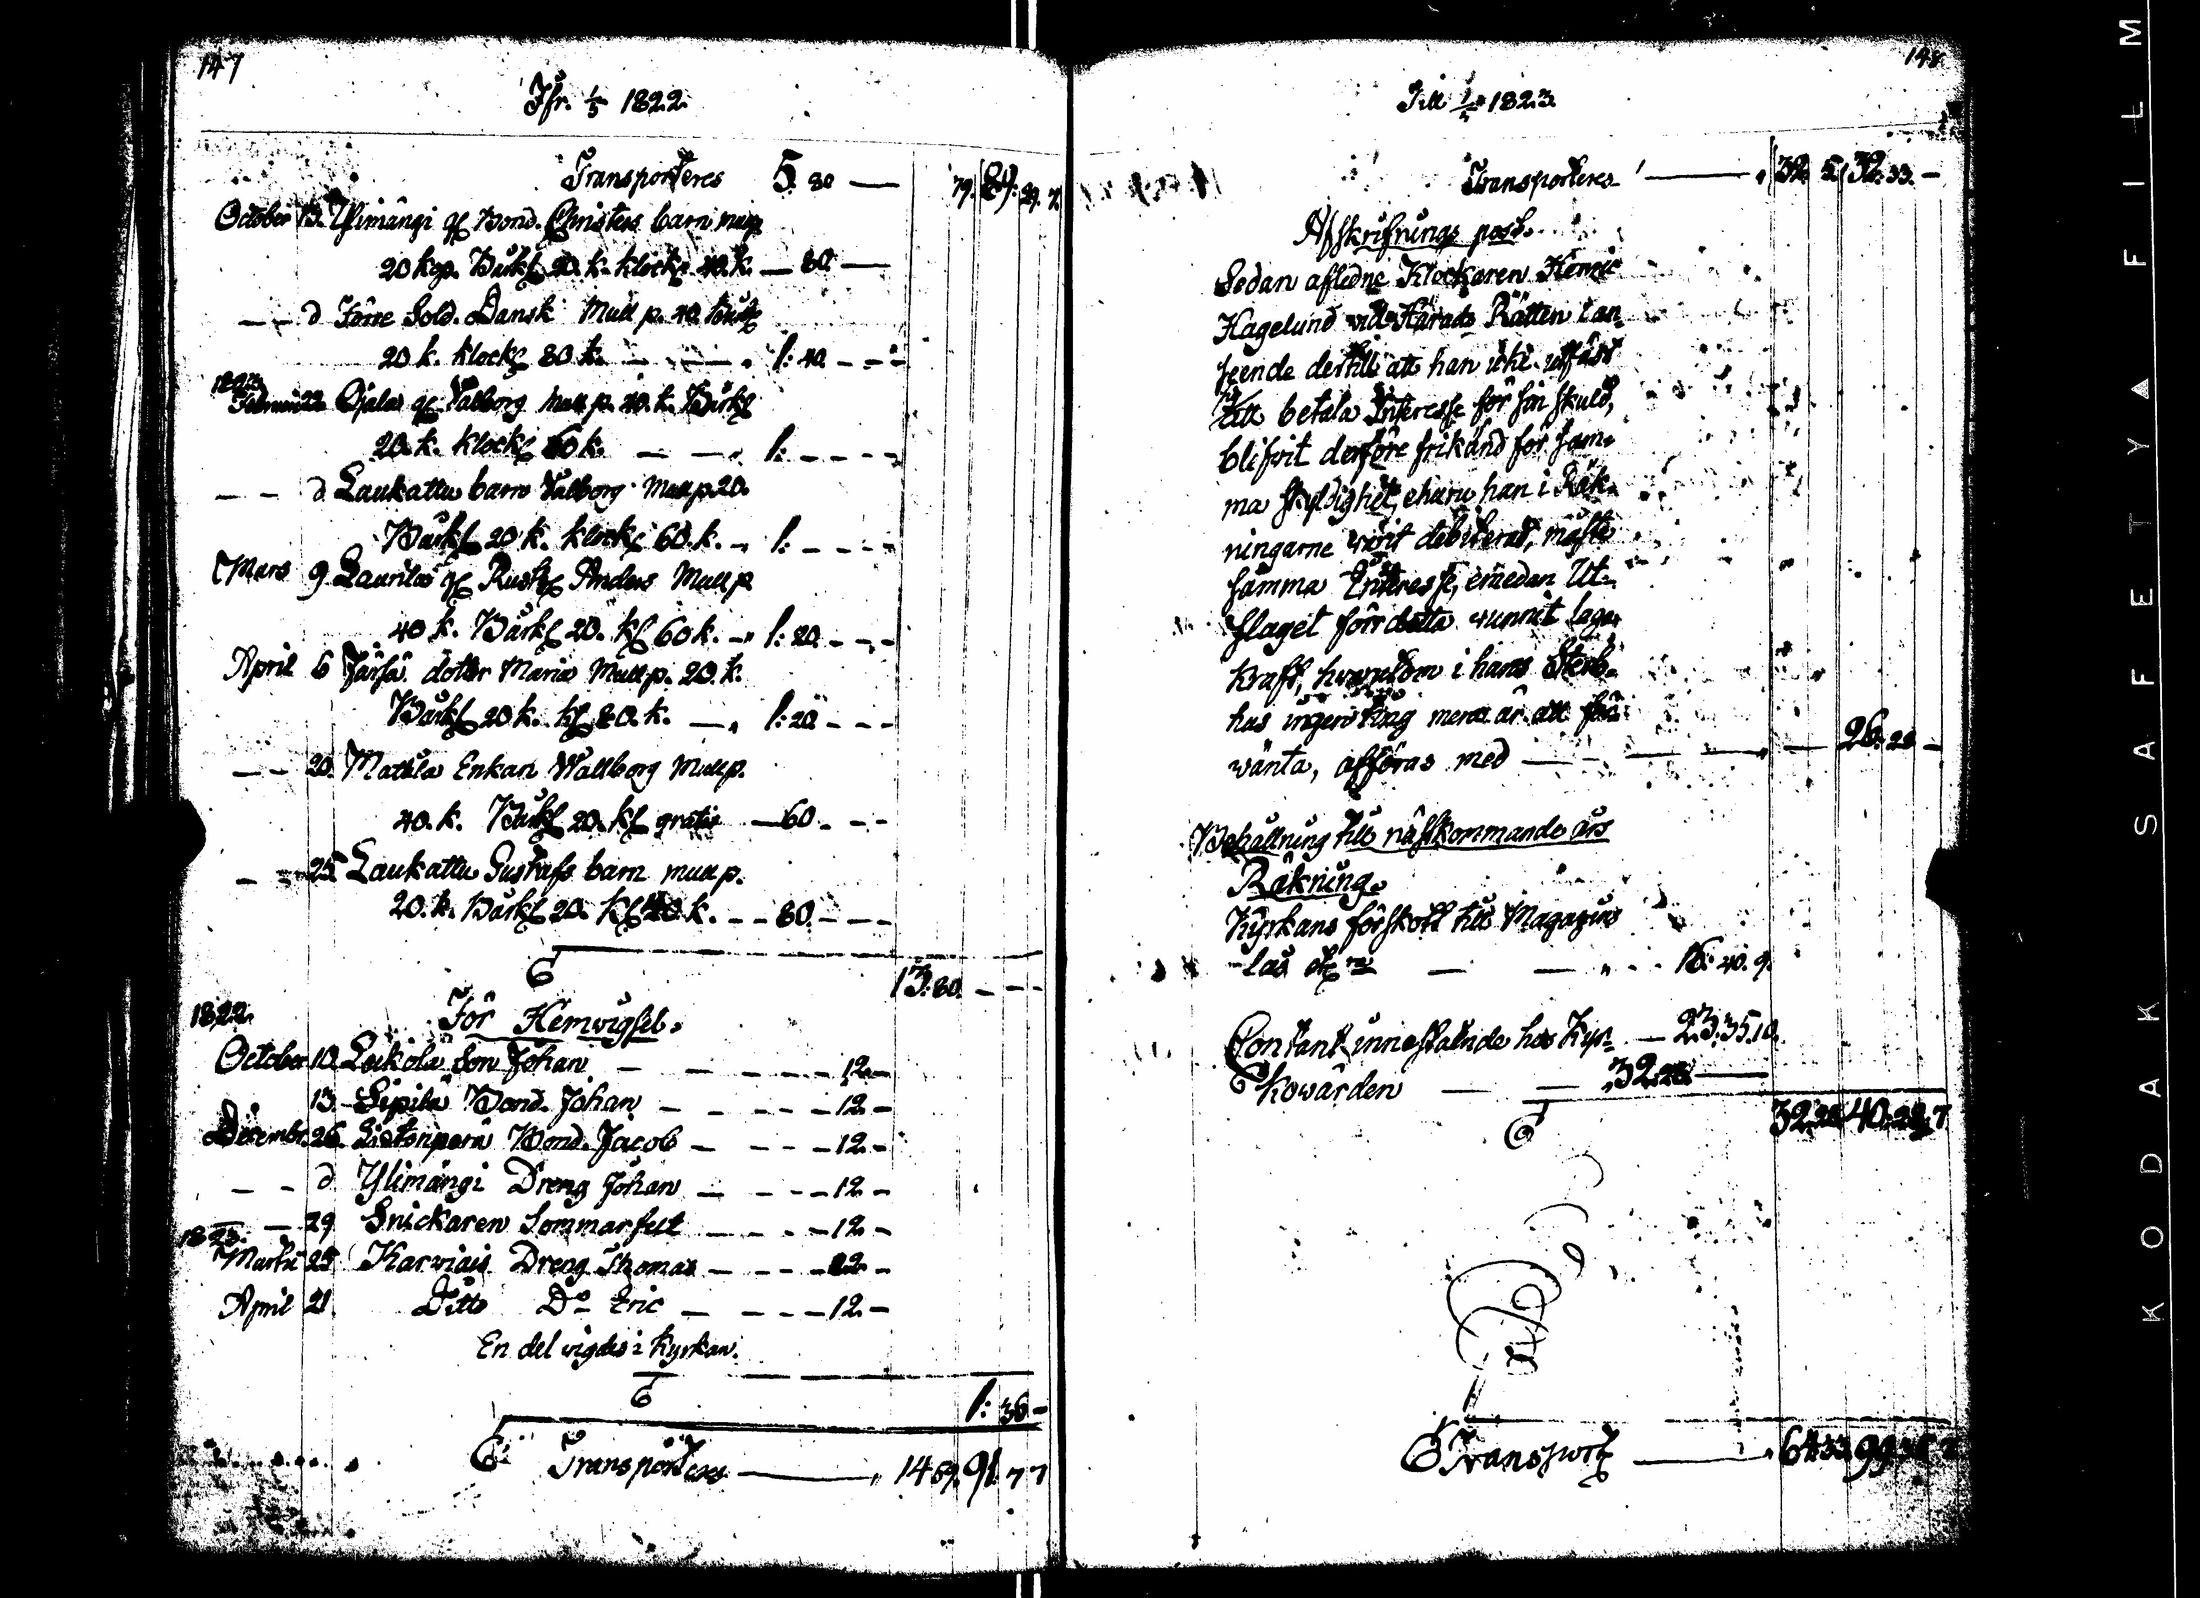 147
Ifr. 1/5 1822.
Transporteres 5. 80 — 79. 89: 29. 7.
October 13. Ylimängi gl. Bond. Christers barn mullp
20 kop. Bårkl 20. k. klock 40. k. — 80. —
— — d Förre Sold. Dansk Mull p. 40. Bårkl
20 k. klockl 80 k. — — — 1: 40 - - -
1823 Februari 22 Ojala gl. Valborg Mull p. 40. k. Bårkl
20. k. klockl 60 k. — — 1: - - - -
— — d Laukattu barn Valborg Mullp 20.
Bårkl 20 k. klockl 60. k. — 1: - - - -
Mars 9 Laurila gl Rusth Anders Mull p
40 k. Bårkl 20. kl 60 k. — 1: 20. - - -
April 6 Järfä dotter Maria Mull p. 20. k.
Bårkl 20 k. kl 80. k. — 1: 20 - - -
— — 20. Mattila Enkan Wallborg Mullp.
40. k. Bårkl 20. kl gratis — 60. - - -
— — 25. Laukattu Gustafs barn mull p.
20. k. Bårkl 20. kl 40 k. - - 80. - - -
13: 80. - - -
1822.
För Hemvigsel.
October 10. Leikola Son Johan — — - - - 12. -
13. Sipilä Bond. Johan — - - - 12. -
Decembr. 26. Listonperä Bond. Jacob — - - - 12. -
— - d Ylimängi Dreng Johan — - - - 12 -
— — 29 Snickaren Sommarfelt — - - - 12. -
1823.
Martii 25 Karviais Dreng Thomas — - - - 12 -
April 21. Ditto Do Eric — - - - 12. -
En del vigdes i Kyrkan.
1: 36 -
Transporteres — 14 69. 91. 7 7
148
Till 1/5 1823.
Transporteres — 32. 5. 132. 33. -
Afskrifnings post.
Sedan afledne Klockaren Henric
Hagelund vid Härads Rätten i an
seende dertill att han icke utfäst
sig att betala Interesse för sin skuld,
blifvit derföre frikänd för sam-
ma skyldighet, ehuru han i Räk-
ningarne varit debiterad, måste
samma Interesse, emedan Ut-
slaget förr detta vunnit laga
kraft, hvarutom i hans Sterb-
hus ingen ting mera är att för
wänta, afföras med — — — 26: 28 -
Behållning till nästkommande års
Räkning.
Kyrkans förskott till Magazins
— — - - 16: 40. 9.
Contant innestående hos Kyr- — 23: 35. 10.
kowärden — — 32. 28. —
32. 28 40. 28. 7
Transport —
KODAK SAFETY ▲ FILM